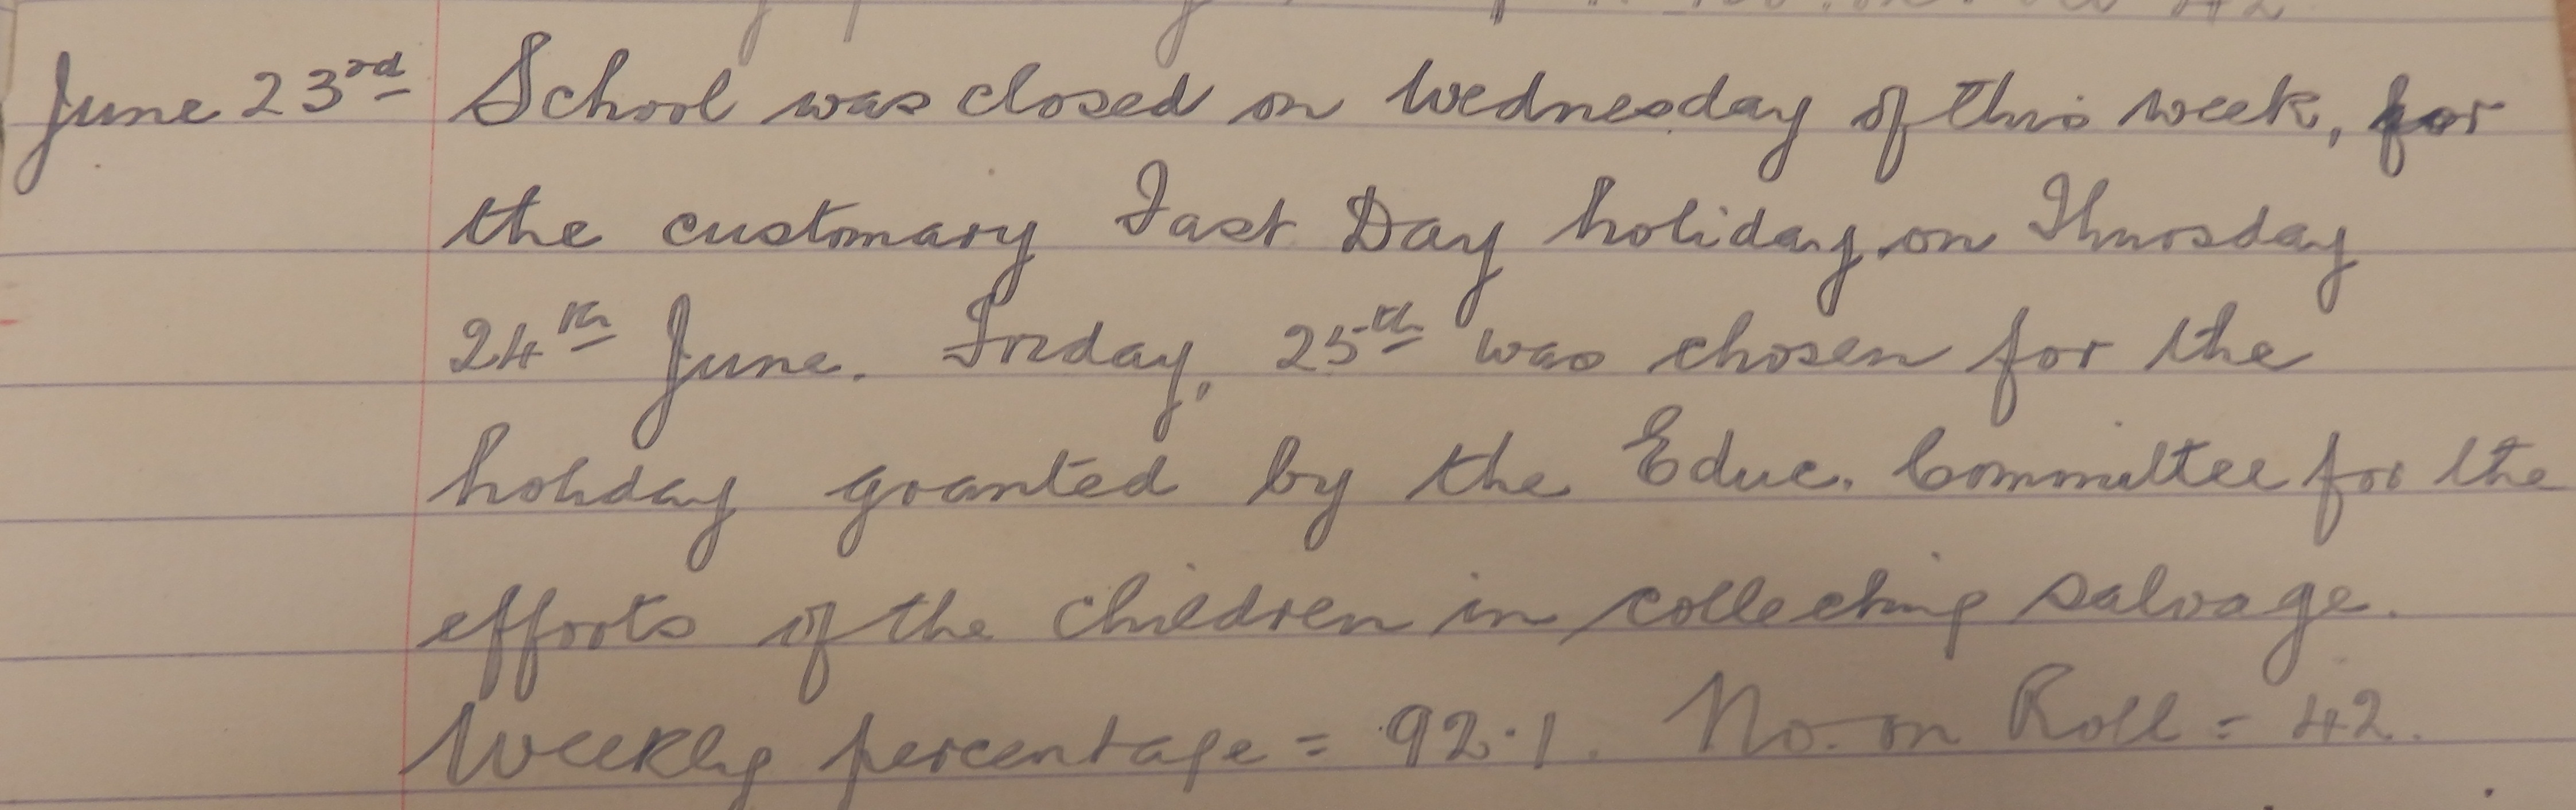 June 23rd School was closed on Wednesday of this week, for
the customary Fast Day holiday on Thursday
24th June. Friday, 25th was chosen for the
holiday granted by the Educ. Committee for the
efforts of the children in collecting salvage.
Weekly percentage = 92·1. No. on Roll = 42.